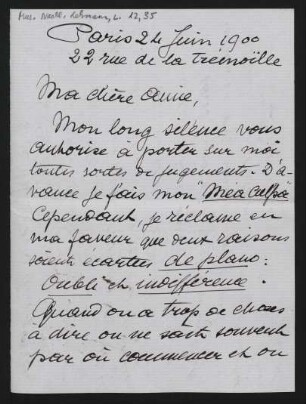 Mus. Nachl. Lehmann, L. 12, 35
Paris 24 Juin 1900
22 rue de la Trémoïlle
Ma chère amie,
Mon long silence vous
authorise à porter sur moi
toutes sortes de jugements. D'a-
vance je fais mon "Mea culpa"
Cependant, je réclame en
ma faveur que deux raisons
soient écartées de plano:
Oubli et indifférence.
Quand on a trop de choses
à dire on ne sait souvent
par où commencer et on